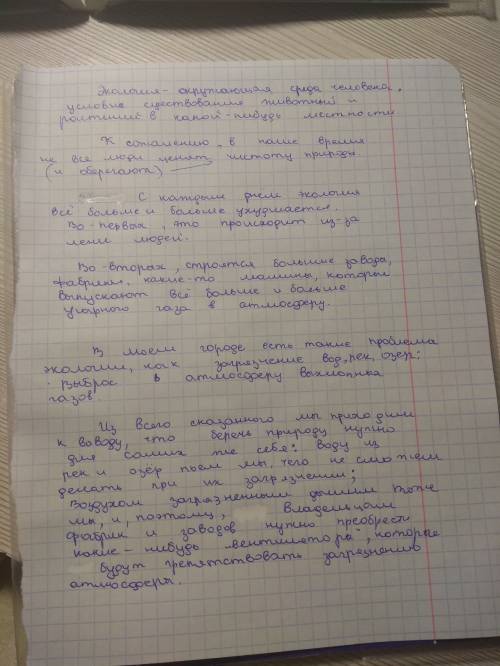 Экология - окружающая среда человека,
условие существование животный и
ростиний в какой-нибудь местности
К сожалению, в наше время
не все люди ценят чистоту природы
(и оберегают)
С каждым днем экология
всё больше и больше ухудшается.
Во-первых, это происходит из-за
лени людей.
Во-вторах, строятся большие завода,
фабрики, какие-то машины, которыи
выпускают всё больше и больше
угарного газа в атмосферу.
В моем городе есть такие проблема
экологии, как загрязнение вод, рек, озер;
выброс в атмосферу выхлопных
газов
Из всего сказанного мы приходим
к воводу, что беречь природу нужно
для самих же себе: воду из
рек и озёр пьем мы, чего не сможем
делать при их загрязнении;
Воздухом загрязненным дышим тоже
мы, и, поэтому, Владельцам
фабрик и заводов нужно преобрести
какие-нибудь "вентилятора", которые
будут препятствовать загрязнению
атмосферы.